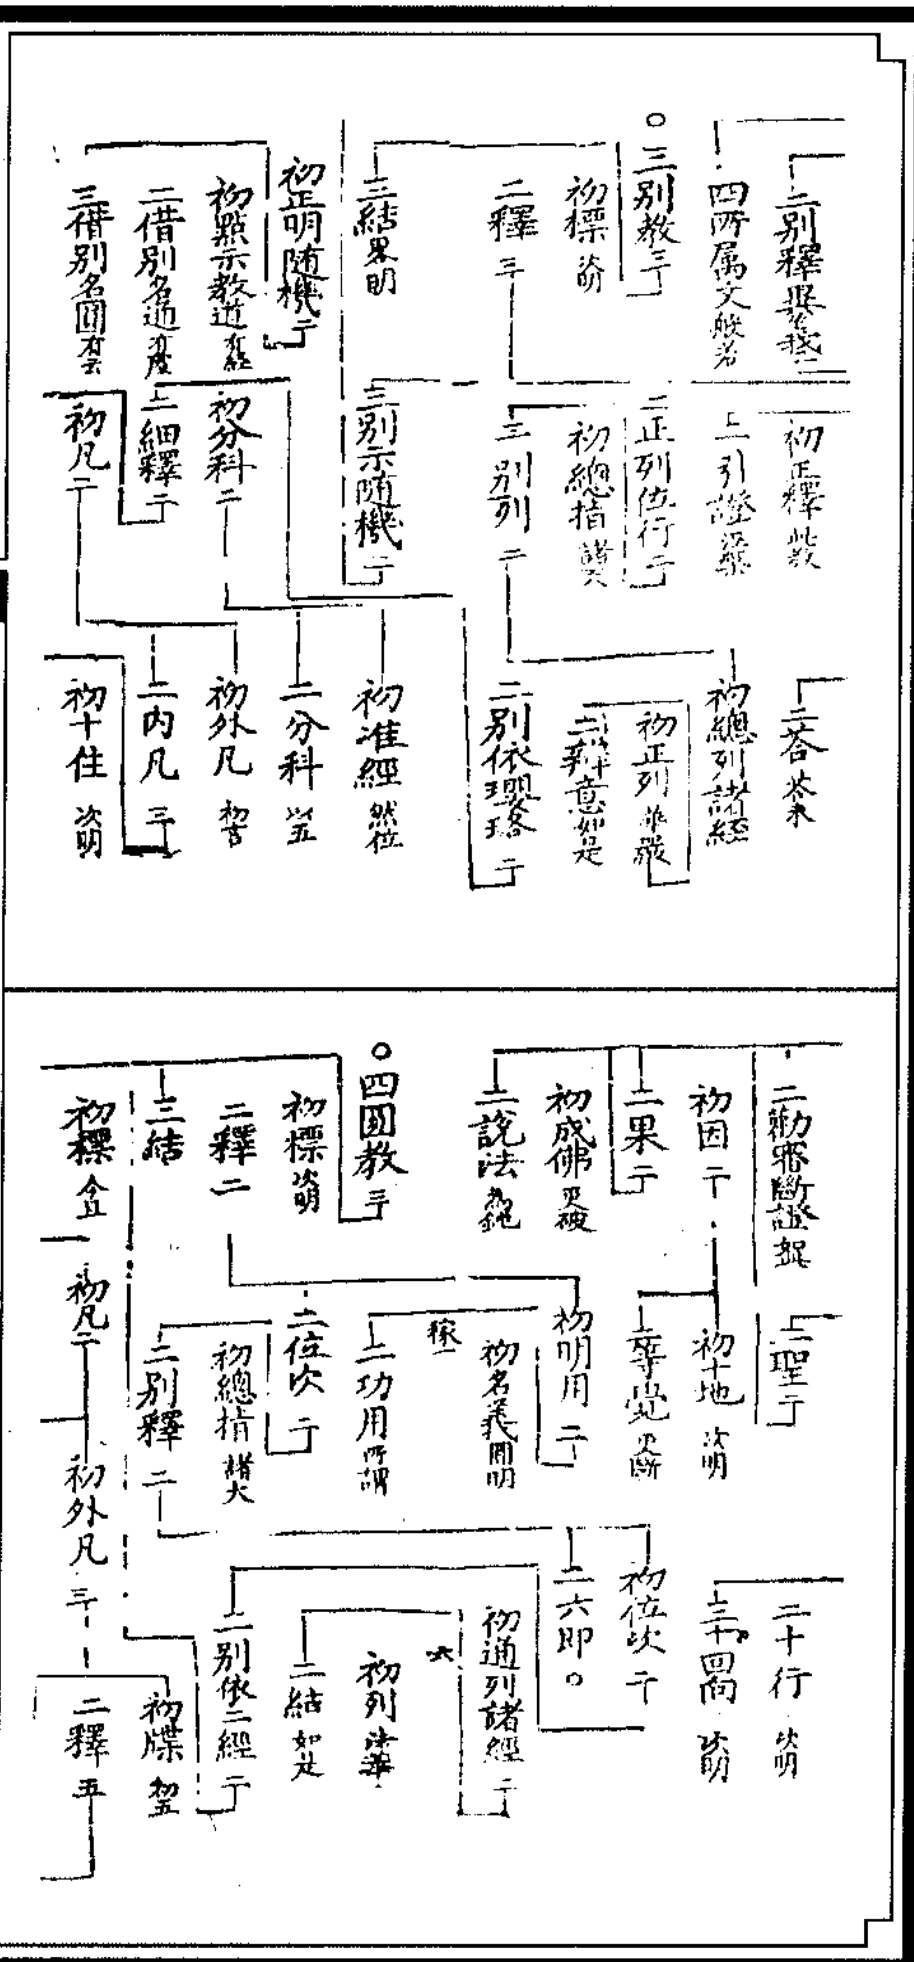 二別釋
四所屬文般若
○三別教三
初標次明
二釋三
三結是明
初正明隨機二
初點示教道
二借別名通
三借別名圓
初正釋
二引證
二正列位行二
初總指諸大
二別列二
三別示隨機二
初分科二
二細釋二
初凡二
二答答來
初總列諸經
初正列華嚴
二辨意如是
二別依瓔珞二
初准經然位
二分科以五
初外凡初言
二內凡三
初十住次明
二勸審斷證
初因二
二果二
初成佛更破
二說法為鈍
○四圓教三
初標次明
二釋二
三結
初標
二聖二
初十地次明
二等覺更斷
初明用二
初名義圓明
二功用所謂
二位次二
初總指諸大
二別釋二
初凡二
二十行次明
三十回向次明
初位次二
二六即○
初通列諸經二
初列法華
二結如是
二別依二經二
初牒初五
初外凡三
二釋五